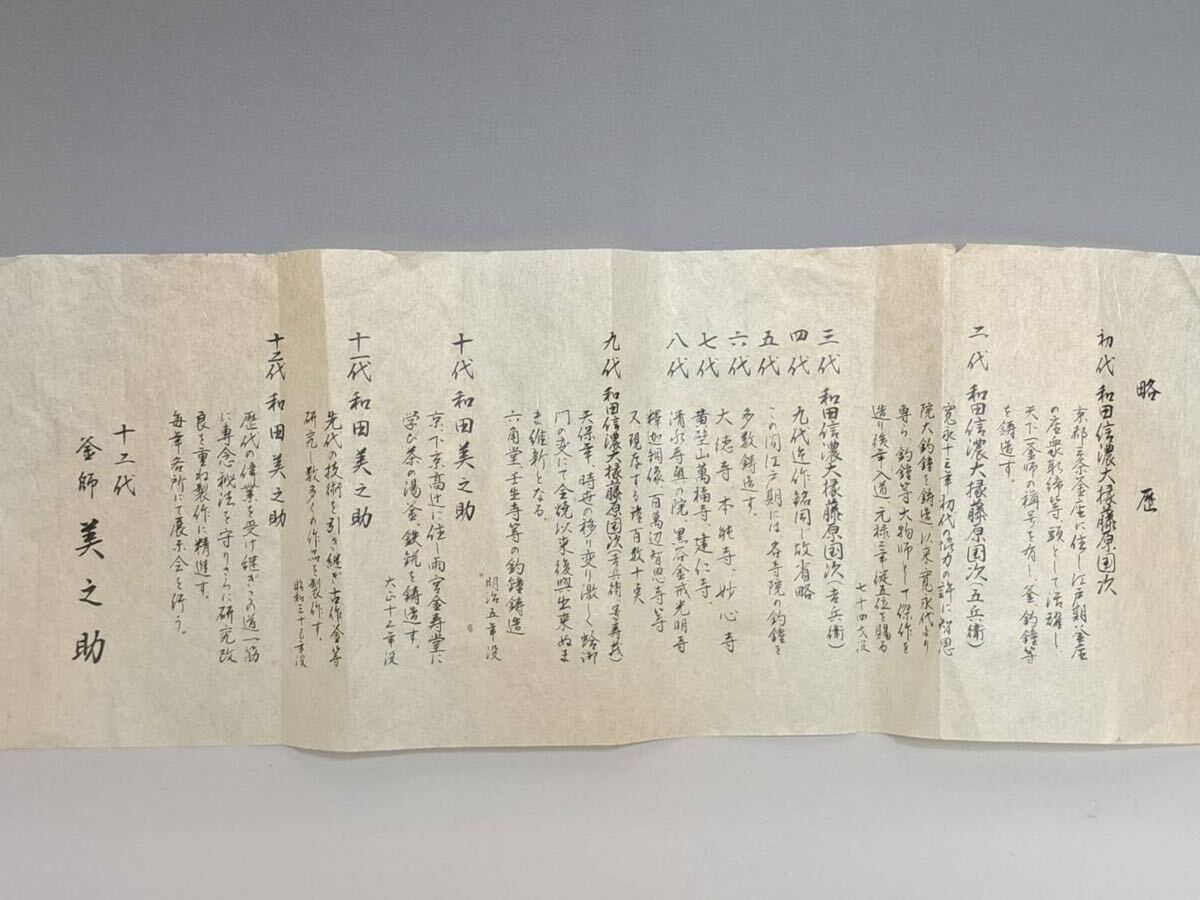 略歴
初代 和田信濃大掾藤原国次
京都三条釜座に住し江戸期釜座
の座衆取締等頭として活躍し
天下一釜師の稱号を有し釜釣鐘等
を鋳造す。
二代 和田信濃大掾藤原国次(五兵衛)
寛永十三年初代の協力の許に智恩
院大釣鐘を鋳造以来寛永代より
専ら釣鐘等大物師として傑作を
造り後年入道元禄三年従五位を賜る
七十四才没
三代 和田信濃大掾藤原国次(吉兵衛)
四代 九代迄作銘同じ故省略
五代 この間江戸期には各寺院の釣鐘を
六代 多数鋳造す。
七代 大徳寺 本能寺、妙心寺
八代 黄檗山萬福寺、建仁寺、
清水寺奥の院、黒谷金戒光明寺
釋迦銅像、百萬辺智恩寺等
又現存する鐘百数十点
九代 和田信濃大掾藤原国次
天保年、時世の移り変り激しく蛤御
門の変にて全焼以来復興出来ぬま
ま維新となる。
六角堂壬生寺等の釣鐘鋳造
明治五年没
十代 和田美之助
京下京高辻に住し雨宮金寿堂に
学び茶の湯釜鉄鈗を鋳造す。
大正十二年没
十一代 和田美之助
先代の技術を引き継ぎ古作釜等
研究し数多くの作品を製作す。
昭和三十三年没
十二代 和田美之助
歴代の偉業を受け継ぎこの道一筋
に専念秘法を守りさらに研究改
良を重ね製作に精進す。
毎年各所にて展示会を行う。
十二代
釜師 美之助